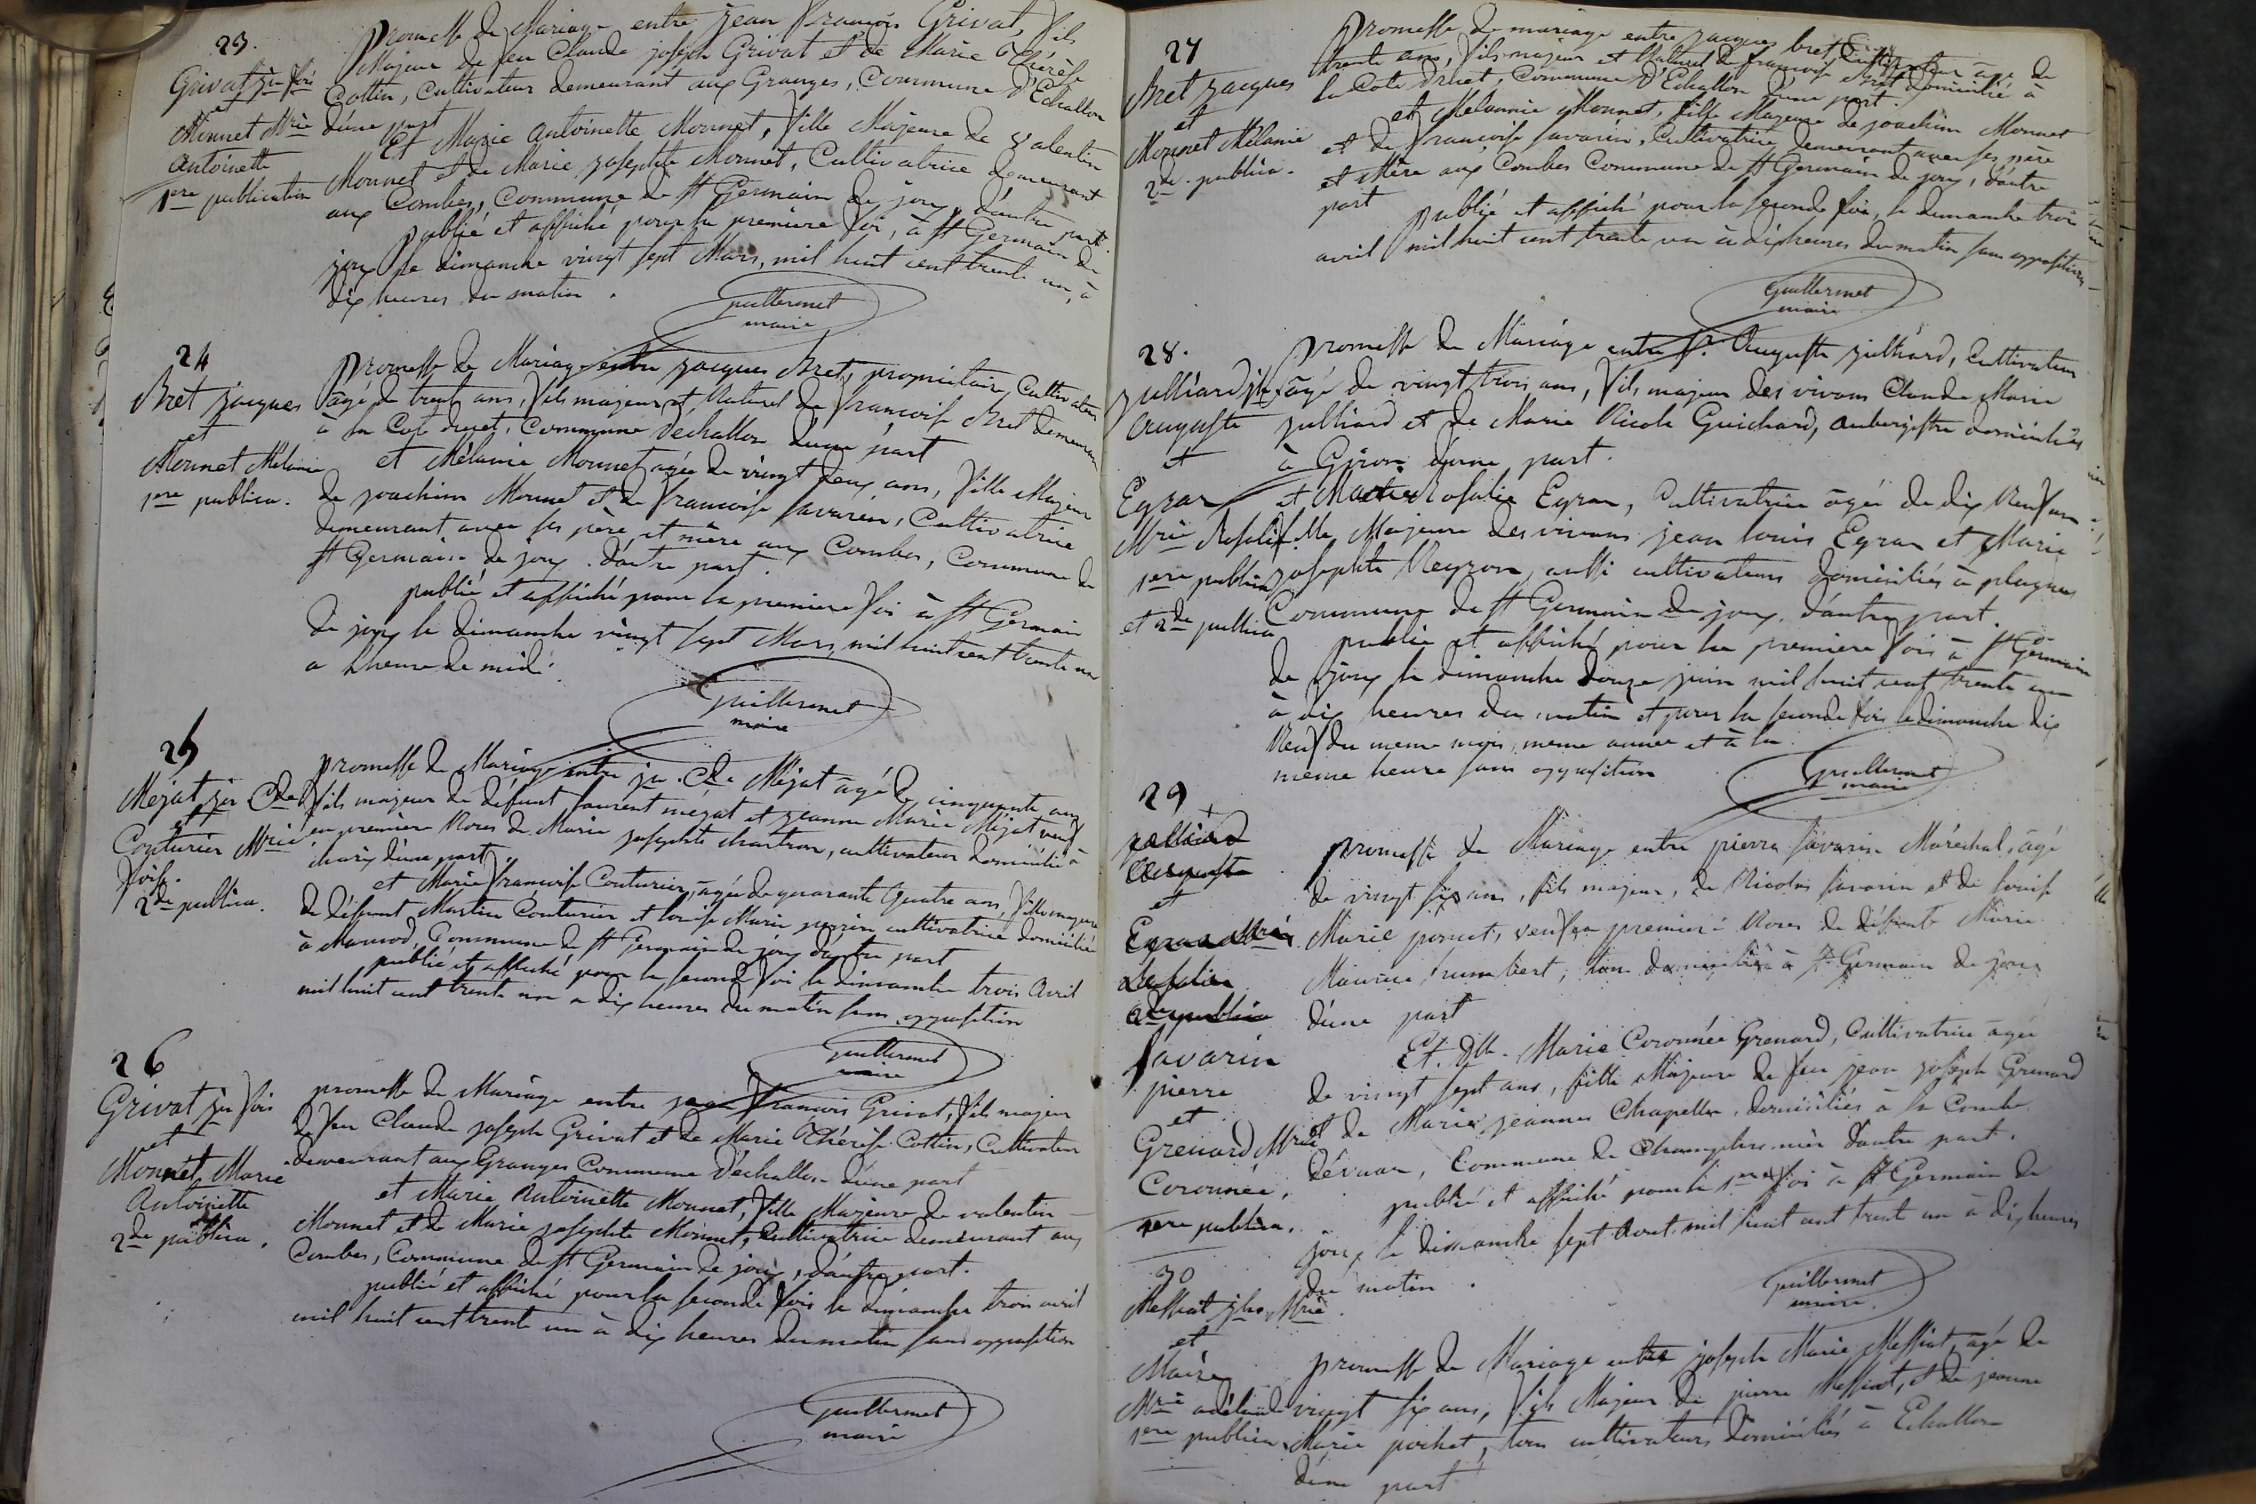 23.
Grivat jn fois
et
Monnet Mrie
Antoinette
1ere publication
Promesse de Mariage entre Jean François Grivat, fils
Majeur de feu Claude joseph Grivat et de Marie Thérèse
Cottin, Cultivateur demeurant aux Granges, Commune d'Echallon
d'une part
Et Marie Antoinette Monnet, fille Majeure de valentin
Monnet et de Marie josephte Monnet, Cultivatrice demeurant
aux Combes, Commune de St Germain de joux, d'autre part.
Publié et affiché pour la première foi, à St Germain de
joux le dimanche vingt sept Mars, mil huit cent trente un, à
dix heures du matin.
Guillermet
maire
24
Bret jacques
et
Monnet Mélanie
1ere publica.
Promesse de Mariage entre jacques Bret, propriétaire Cultivateur
âgé de trente ans, fils majeur et Naturel de françoise Bret demeurant
à la Cote druet, Commune dechallon d'une part
et Mélanie Monnet agée de vingt deux ans, fille Majeure
de joachim Monnet et de françoise Savarin, Cultivatrice
demeurant avec ses père et mère aux Combes, Commune de
St Germain de joux. d'autre part.
publié et affiché pour la premiere foi à St Germain
de joux le dimanche vingt sept Mars mil huit cent trente un
a lheure de midi.
Guillermet
maire
25
Méjat jn Cde
et
Couturier Mrie
foise.
2de publica.
promesse de Mariage entre jn. Cde Méjat âgé de cinquante ans
fils majeur de défunt laurent méjat et jeanne Marie Méjat veuf
en première Noces de Marie josephte chartron, cultivateur domicilié à
charix d'une part
et Marie françoise Couturier, agée de quarante quatre ans, fille majeure
de défunt Martin Couturier et louise Marie perrin cultivatrice domiciliée
à Marnod, Commune de St Germain de joux d'autre part
publié et affiché pour la seconde foi le dimanche trois Avril
mil huit cent trente un a dix heures du matin sans opposition
guillermet
maire
26
Grivat jn fois
et
Monnet Marie
Antoinette
2de publica.
promesse de Mariage entre jean françois Grivat, fils majeur
de feu Claude joseph Grivat et de Marie Thérèse Cottin, Cultivateur
demeurant aux Granges Commune d'échallon d'une part
et Marie Antoinette Monnet, fille Majeure de valentin
Monnet et de Marie josephte Monnet, Cultivatrice demeurant aux
Combes, Commune de St Germain de joux, d'autre part.
publié et affiché pour la seconde fois le dimanche trois avril
mil huit cent trente un à dix heures du matin sans opposition
Guillermet
maire
27
Bret jacques
et
Monnet Mélanie
2de. publica.
Promesse de mariage entre jacques bret Cultivateur âgé de
trente ans, fils majeur et Naturel de françoise Bret domicilié à
la Cote druet, Commune d'Echallon d'une part.
et Mélannie Monnet, fille Majeure de joachim Monnet
et de françoise Savarin, Cultivatrice demeurant avec ses père
et Mère aux Combes Commune de St Germain de joux, d'autre
part
Publié et affiché pour la seconde foi, le dimanche trois
avril mil huit cent trente un à dix heures du matin sans opposition
Guillermet
maire
28.
julliard jh
Auguste
et
Egraz
Mrie Rosalie
1ere publica
et 2de publica
Promesse de Mariage entre Auguste julliard, Cultivateur
âgé de vingt trois ans, fils majeur des vivans Claude Marie
julliard et de Marie Nicole Guichard, aubergistre domiciliés
à Giron d'une part.
et Marie Rosalie Egraz, Cultivatrice âgée de dix Neuf ans
fille Majeure des vivans jean louis Egraz et Marie
josephte Neyron, aussi cultivateurs domiciliés à plagnes
Commune de St Germain de joux, d'autre part.
publié et affiché pour la premiere fois à St Germain
de joux le dimanche douze juin mil huit cent trente un
à dix heures du matin et pour la seconde fois le dimanche dix
Neuf du meme mois, meme année et à la
meme heure sans opposition
guillermet
maire
29
julliard
Auguste
et
Egraz Mrie
Rosalie
2de publica
Savarin
pierre
et
Grenard Mrie
Coronnée,
1ere publica.
promesse de Mariage entre pierre Savarin Maréchal, âgé
de vingt six ans, fils majeur, de Nicolas Savarin et de louise
Marie poncet, veuf en premiere Noces de défunte Marie
Maurice humbert, tous domiciliés à St Germain de joux
d'une part
Et. Dlle. Marie Coronnée Grenard, Cultivatrice agée
de vingt sept ans, fille Majeure de feu jean joseph Grenard
et de Marie jeanne Chapelle, domiciliés à la Combe
d'évuaz, Commune de Champfromier d'autre part.
publié et affiché pour la 1ere foi à St Germain de
joux le dimanche sept Aout mil huit cent trente un à dix heures
du matin.
guillermet
maire
30
Messiat jh Mrie
et
Maire
Mrie adélaide
1ere publica.
promesse de Mariage entre joseph Marie Messiat, âgé de
vingt six ans, fils Majeur de pierre Messiat, et de jeanne
Marie pochet, tous cultivateurs domiciliés à Echallon
d'une part